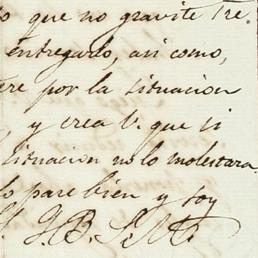 o que no gravite Tre.
entregado, asi como,
ere por la situacion
, y crea V. que si
situacion no lo molestara.
lo pase bien y soy
J. B.